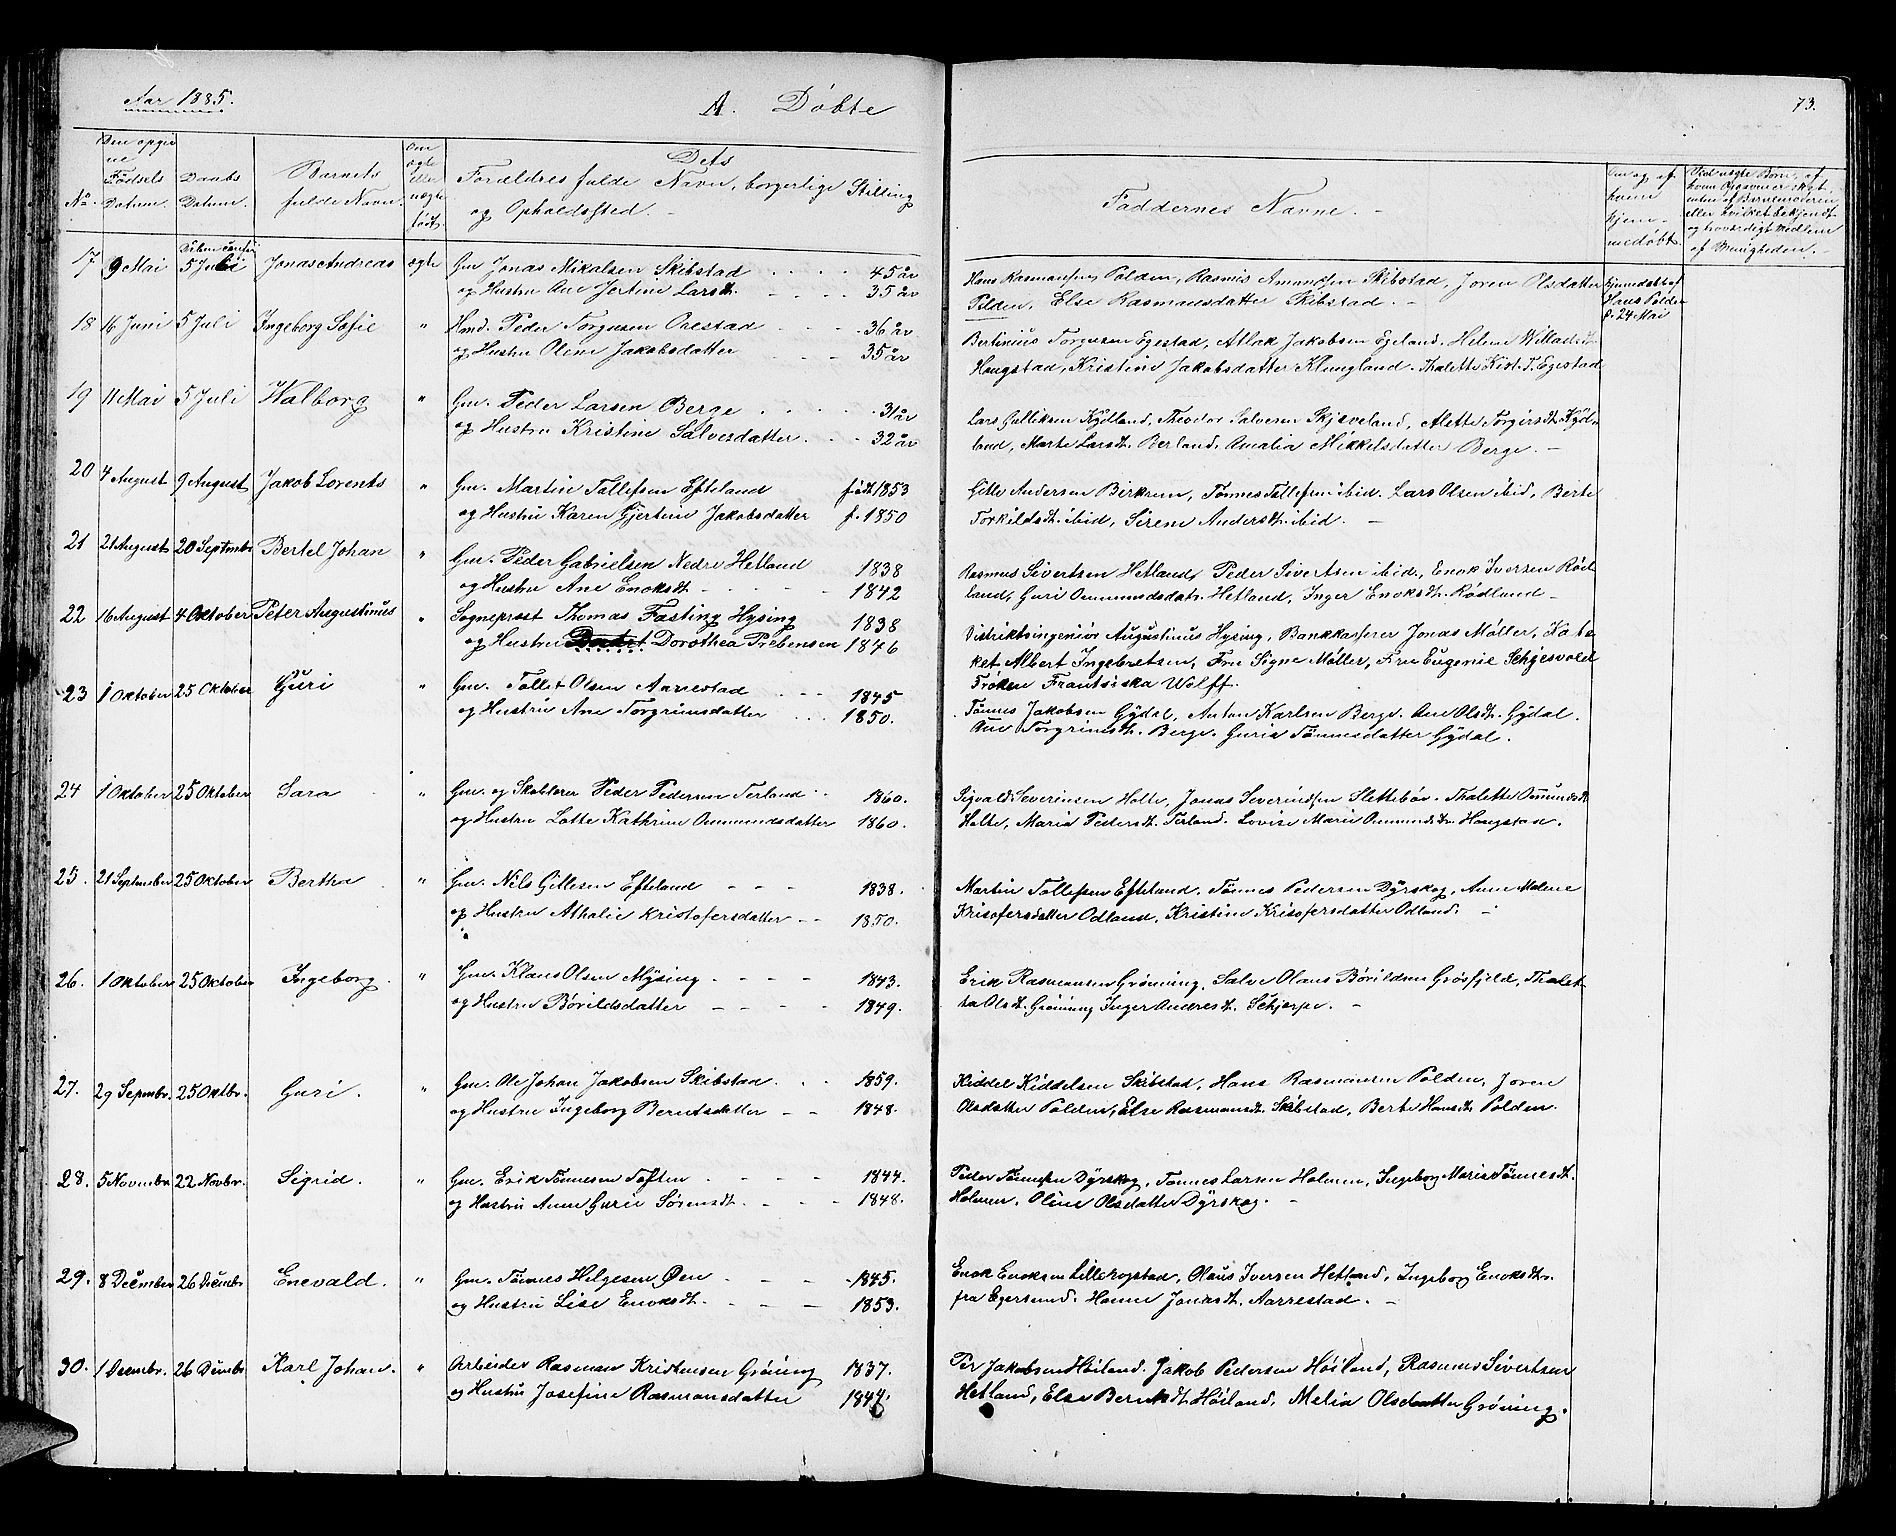 Aar 1885.
A. Døbte
73.
No.
Den opgivne Fødsels Datum.
Daabs Datum.
Barnets fulde Navn.
Om ægte eller uægte født.
Dets Forældres fulde Navn, borgerlige Stilling og Opholdssted.
Faddernes Navne.
Om og af hvem hjemmedøbt.
17 9 Mai 5 Juli Jonas Andreas ægte Gm Jonas Mikalsen Skibstad 45 år
og Hustru Ane Jertine Larsdt. 35 år
Hans Rasmussen Polden, Rasmus Amundsen Skibstad, Joren Olsdatter
Polden, Else Rasmusdatter Skibstad.
hjemdøbt af
Hans Polden
d. 24 Mai
18 16 Juni 5 Juli Ingeborg Sofie " Hmd. Peder Torgusen Orestad 36 år
og Hustru Oline Jakobsdatter 35 år
Bertinius Torgusen Egestad, Atlak Jakobsen Egeland, Helene Willadsdt.
Hougstad, Kristine Jakobsdatter Klungland. Thalette Kist. T. Egestad
19 11 Mai 5 Juli Walborg " Gm. Peder Larsen Berge 31 år
og Hustru Kristine Salvesdatter 32 år
Lars Gulliksen Kydland, Theodor Salvesen Skjeveland, Alette Torgersdt. Kyd-
land, Marte Larsdt. Berland. Amalia Mikkelsdatter Berge.
20 4 August 9 August Jakob Lorents " Gm. Martin Tollefsen Efteland født 1853
og Hustru Karen Gjertine Jakobsdatter f. 1850
Gitle Andersen Birkrem, Tønnes Tollefsen ibid. Lars Olsen ibid, Berte
Torkildsdt. ibid, Sirene Andersdt. ibid.
21 21 August 20 Septmbr Bertel Johan " Gm. Peder Gabrielsen Nedre Hetland 1838
og Hustru Ane Enoksdt. 1842
Rasmus Sivertsen Hetland, Peder Sivertsen ibid., Enok Iversen Rød-
land, Guri Ommundsdatr. Hetland, Inger Enoksdt. Rødland
22 16 August 4 Oktober Peter Augustinus " Sogneprest Thomas Fasting Hysing 1838
og Hustru Dorothea Prebensen 1846
Distriktsingeniør Augustinus Hysing, Bankkasserer Jonas Møller, Kate-
ket Albert Ingebretsen, Fru Signe Møller, Fru Eugenie Schjesvold
Frøken Frantsiska Wolff.
23 1 Oktober 25 Oktober Guri " Gm. Tollef Olsen Aarrestad 1845
og Hustru Ane Torgrimsdatter 1850.
Tønnes Jakobsen Gydal, Anton Karlsen Berge. Ane Olsdt. Gydal.
Ane Torgrimsdt. Berge. Guria Tønnesdatter Gydal.
24 1 Oktober 25 Oktober Sara " Gm. og Skolelærer Peder Pedersen Terland 1860.
og Hustru Lotte Kathrine Ommundsdatter 1860.
Sigvald Severinsen Holte, Jonas Severinsen Slettebøe. Thalette Ommundsdt
Holte, Maria Pedersdt. Terland. Lovise Marie Ommundsdtr. Hougstad.
25. 21 September 25 Oktober Bertha " Gm. Nils Gitlesen Efteland 1838.
og Hustru Athalie Kristofersdatter 1850.
Martin Tollefsen Efteland. Tønnes Pedersen Dyrskog, Anne Malene
Krisofersdatter Odland, Kristine Krisofersdatter Odland.
26. 1 Oktober 25 Oktober Ingeborg. " Gm. Klaus Olsen Mysing 1843.
og Hustru Børildsdatter 1849.
Erik Rasmussen Grønning, Salve Olaus Børildsen Grøsfjeld, Thalet-
ta Olsdt. Grønning Inger Andresdt. Schjerpe.
27. 29 Sepmbr. 25 Oktbr. Guri. " Gm. Ole Johan Jakobsen Skibstad. 1859.
og Hustru Ingeborg Berntsdatter 1848.
Kiddel Kiddelsen Skibstad, Hans Rasmussen Polden, Joren
Olsdatter Polden, Else Rasmusdt. Skibstad, Berte Hansdt. Polden.
28. 5 Novembr. 22 Novbr. Sigrid. " Gm. Erik Tønnesen Toften 1844.
og Hustru Anne Gurie Sørensdt. 1848.
Peder Tønnesen Dyrskog, Tønnes Larsen Holmen, Ingeborg Marie Tønnesdt.
Holmen. Oline Olsdatter Dyrskog.
29. 8 December 26 Decmbr Enevald. " Gm. Tønnes Helgesen Øen 1845.
og Hustru Lise Enoksdt. 1853.
Enok Enoksen Lillerogstad, Olaus Iversen Hetland, Ingeborg Enoksdtr.
fra Egersund. Hanne Jonasdt. Aarrestad.
30. 1 Desembr. 26 Decmbr Karl Johan. " Arbeider Rasmus Kristensen Grøning 1837.
og Hustru Josefine Rasmusdatter 1847.
Per Jakobsen Høiland. Jakob Pedersen Høiland, Rasmus Sivertsen
Hetland, Else Berntsdt. Høiland, Melia Olsdatter Grøning.